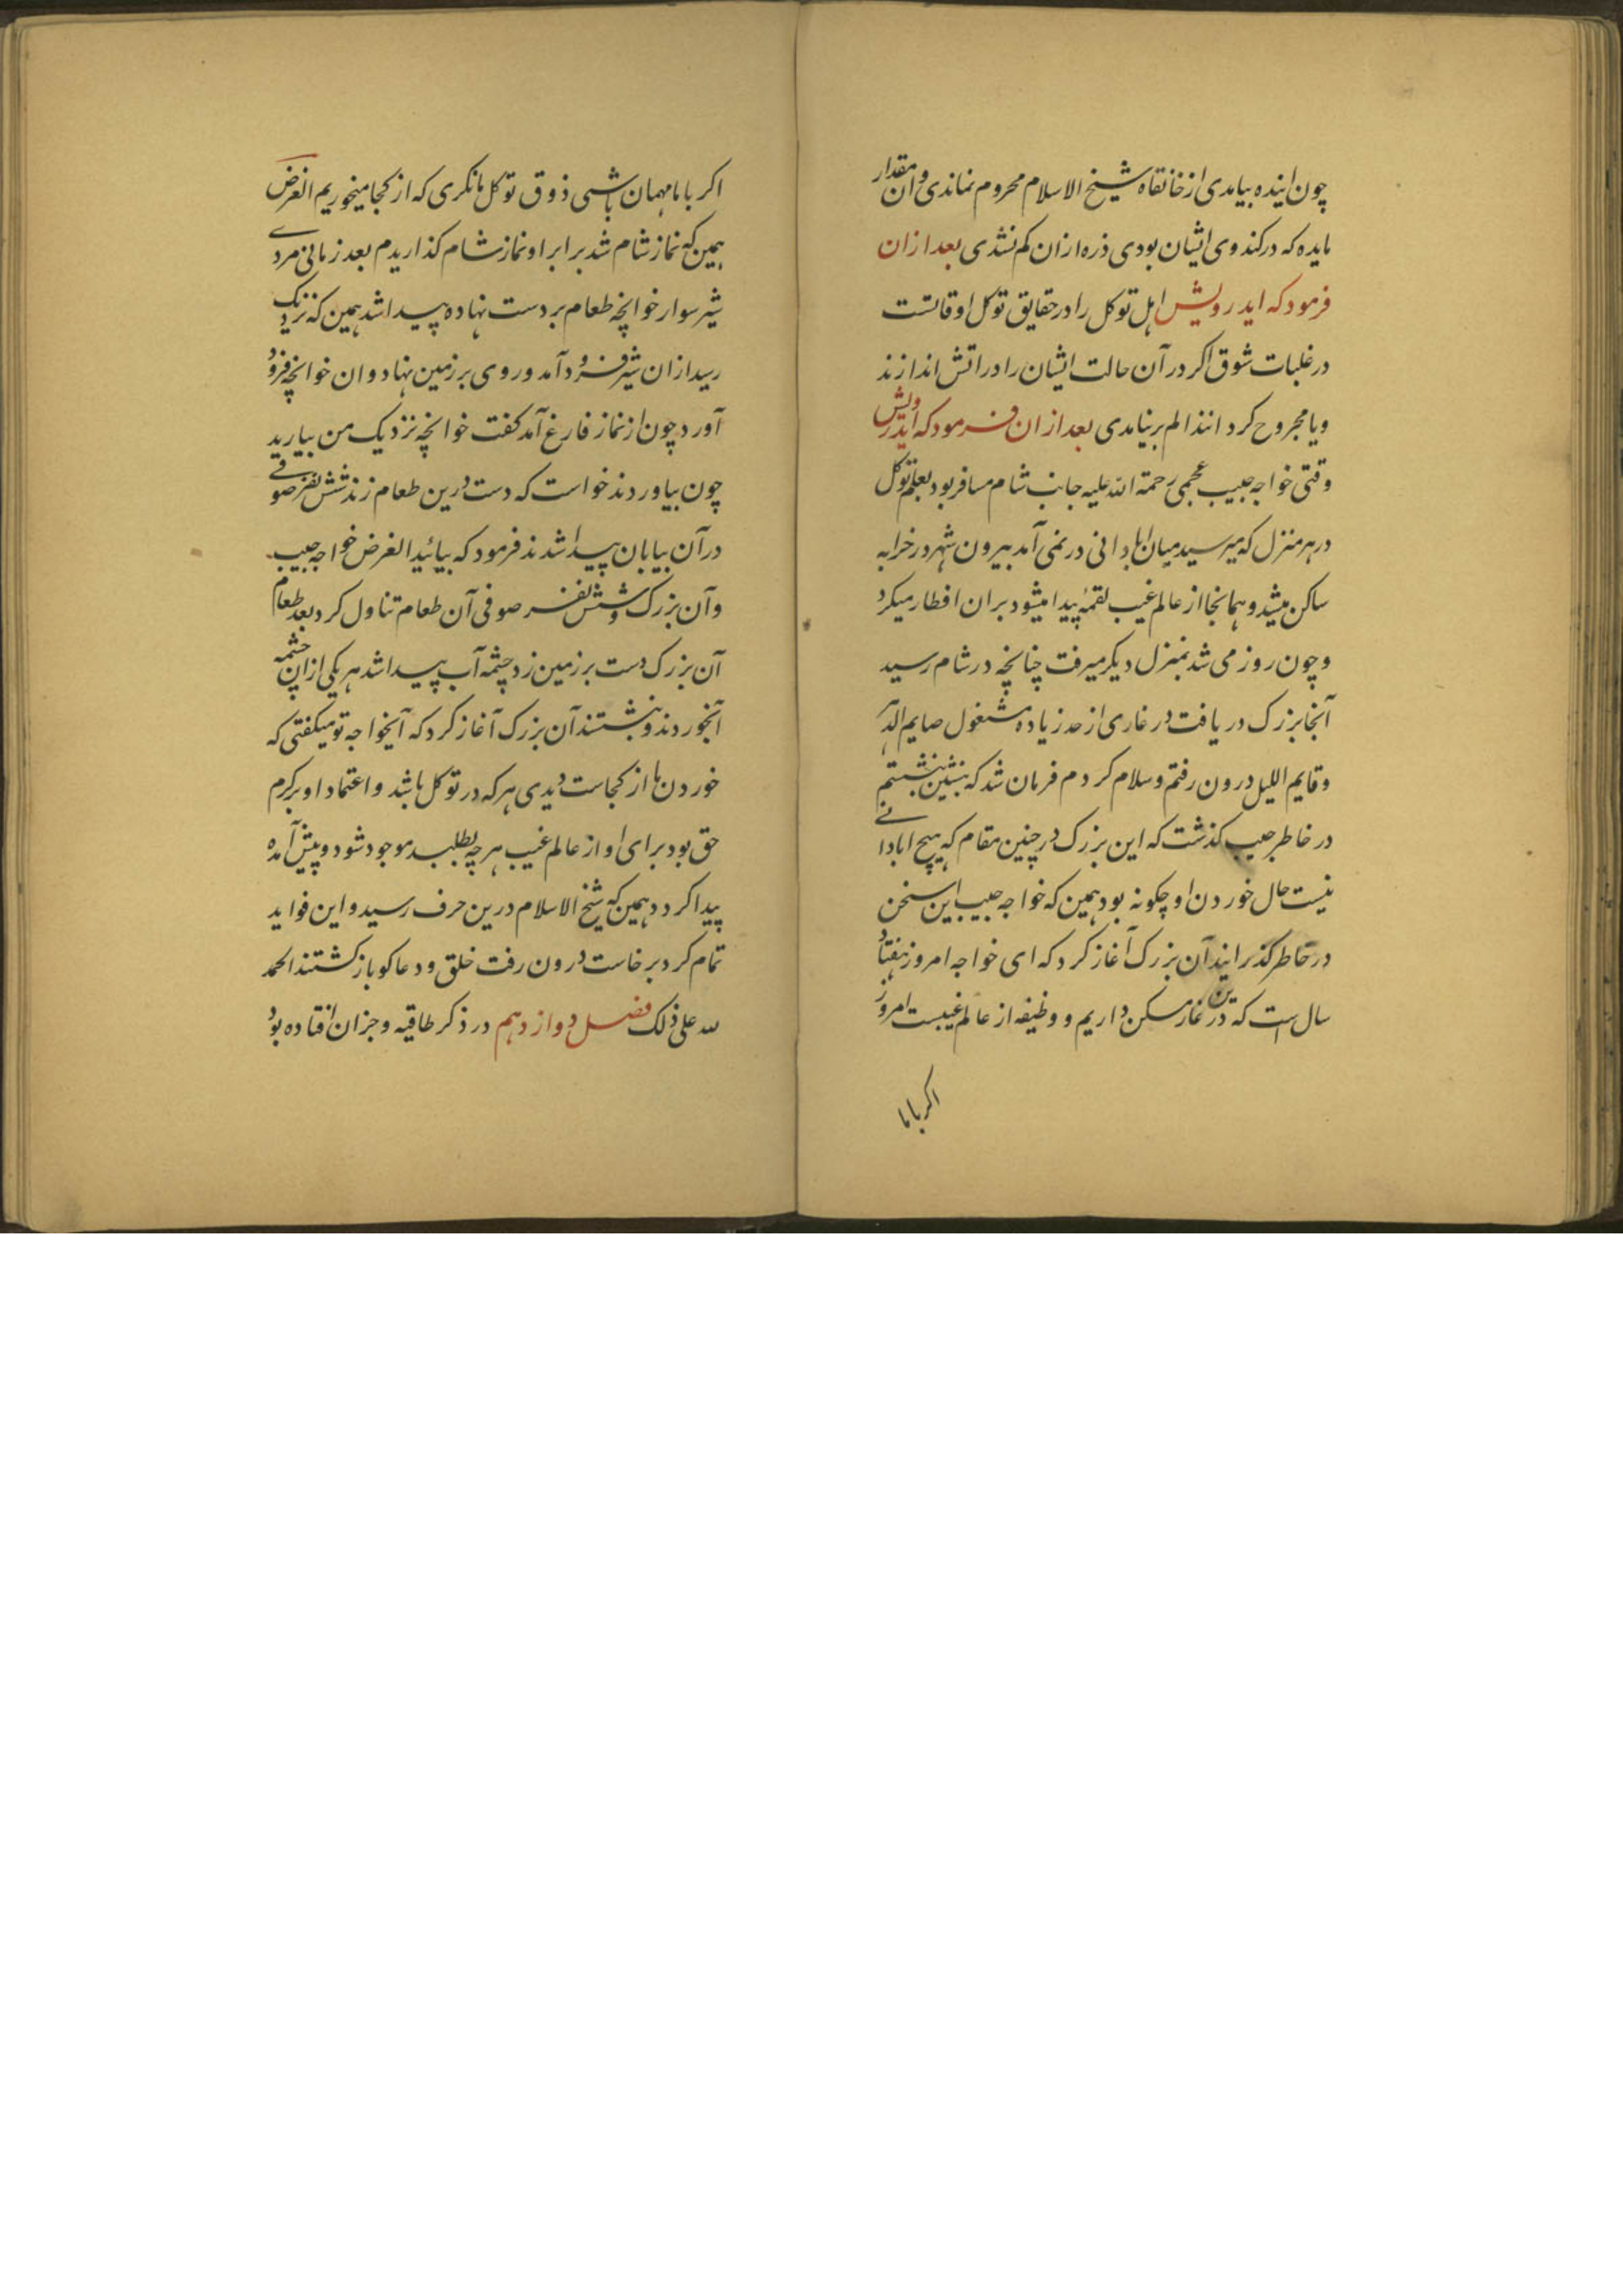 چون اینده بیامدی از خانقاه شیخ الاسلام محروم نماندی و آن مقدار
مایده که در کندوی ایشان بودی ذره ازان کم نشدی بعد ازان
فرمود که ایدرویش اهل توکل را در حقایق توکل اوقاتست
در غلبات شوق اکر در آن حالت ایشان را در اتش اندازند
و یا مجروح کردانند الم بر نیامدی بعد ازان فرمود که ایدرویش
وقتی خواجه حبیب عجمی رحمة الله علیه جانب شام مسافر بود بعلم توکل
در هر منزل که میرسید میان ابادانی در نمی آمد بیرون شهر در خرابه
ساکن میشد و همانجا از عالم غیب لقمهٔ پیدا میشود بران افطار میکرد
و چون روز می شد بمنزل دیکر میرفت چنانچه در شام رسید
آنجا بزرک دریافت در غاری از حد زیاده مشغول صایم الدهر
و قایم اللیل درون رفتم و سلام کردم فرمان شد که بنشین بنشستم
در خاطر حبیب کذشت که این بزرک در چنین مقام که هیچ ابادانی
نیست حال خوردن او چکونه بود همین که خواجه حبیب این سخن
در خاطر کذرانید آن بزرک آغاز کرد که ای خواجه امروز هفتاد
سال ست که درین غار مسکن داریم و وظیفه از عالم غیبست امروز
اکر باما
اکر باما مهمان باشی ذوق توکل ما نکری که از کجا میخوریم الغرض
همین که نماز شام شد برابر او نماز شام کذاریدم بعد زمانی مردی
شیر سوار خوانچه طعام بر دست نهاده پیدا شد همین که نزدیک
رسید ازان شیر فرود آمد و روی بر زمین نهاد و ان خوانچه فرود
آورد چون از نماز فارغ آمد کفت خوانچه نزدیک من بیارید
چون بیاوردند خواست که دست درین طعام زند شش نفر صوفی
در آن بیابان پیدا شدند فرمود که بیائید الغرض خواجه حبیب
و آن بزرک و شش نفر صوفی آن طعام تناول کرد بعد طعام
آن بزرک دست بر زمین زد چشمه آب پیدا شد هر یکی ازان چشمه
آبخوردند و بنشستند آن بزرک آغاز کرد که آیخواجه تو میکفتی که
خوردن ما از کجاست دیدی هر که در توکل باشد و اعتماد او بر کرم
حق بود برای او از عالم غیب هر چه بطلبد موجود شود و پیش آمده
پیدا کردد همین که شیخ الاسلام درین حرف رسید و این فواید
تمام کرد برخاست درون رفت خلق و دعاکو بازکشتند الحمد
لله علی ذلک فصل دوازدهم در ذکر طاقیه و جزان افتاده بود